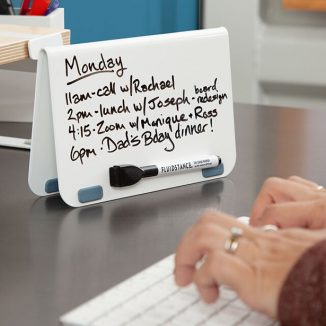 Monday
11am-call w/Rachael
2pm-lunch w/Joseph - board redesign
4:15-Zoom w/Monique + Ross
6pm - Dad's Bday dinner!
FLUIDSTANCE